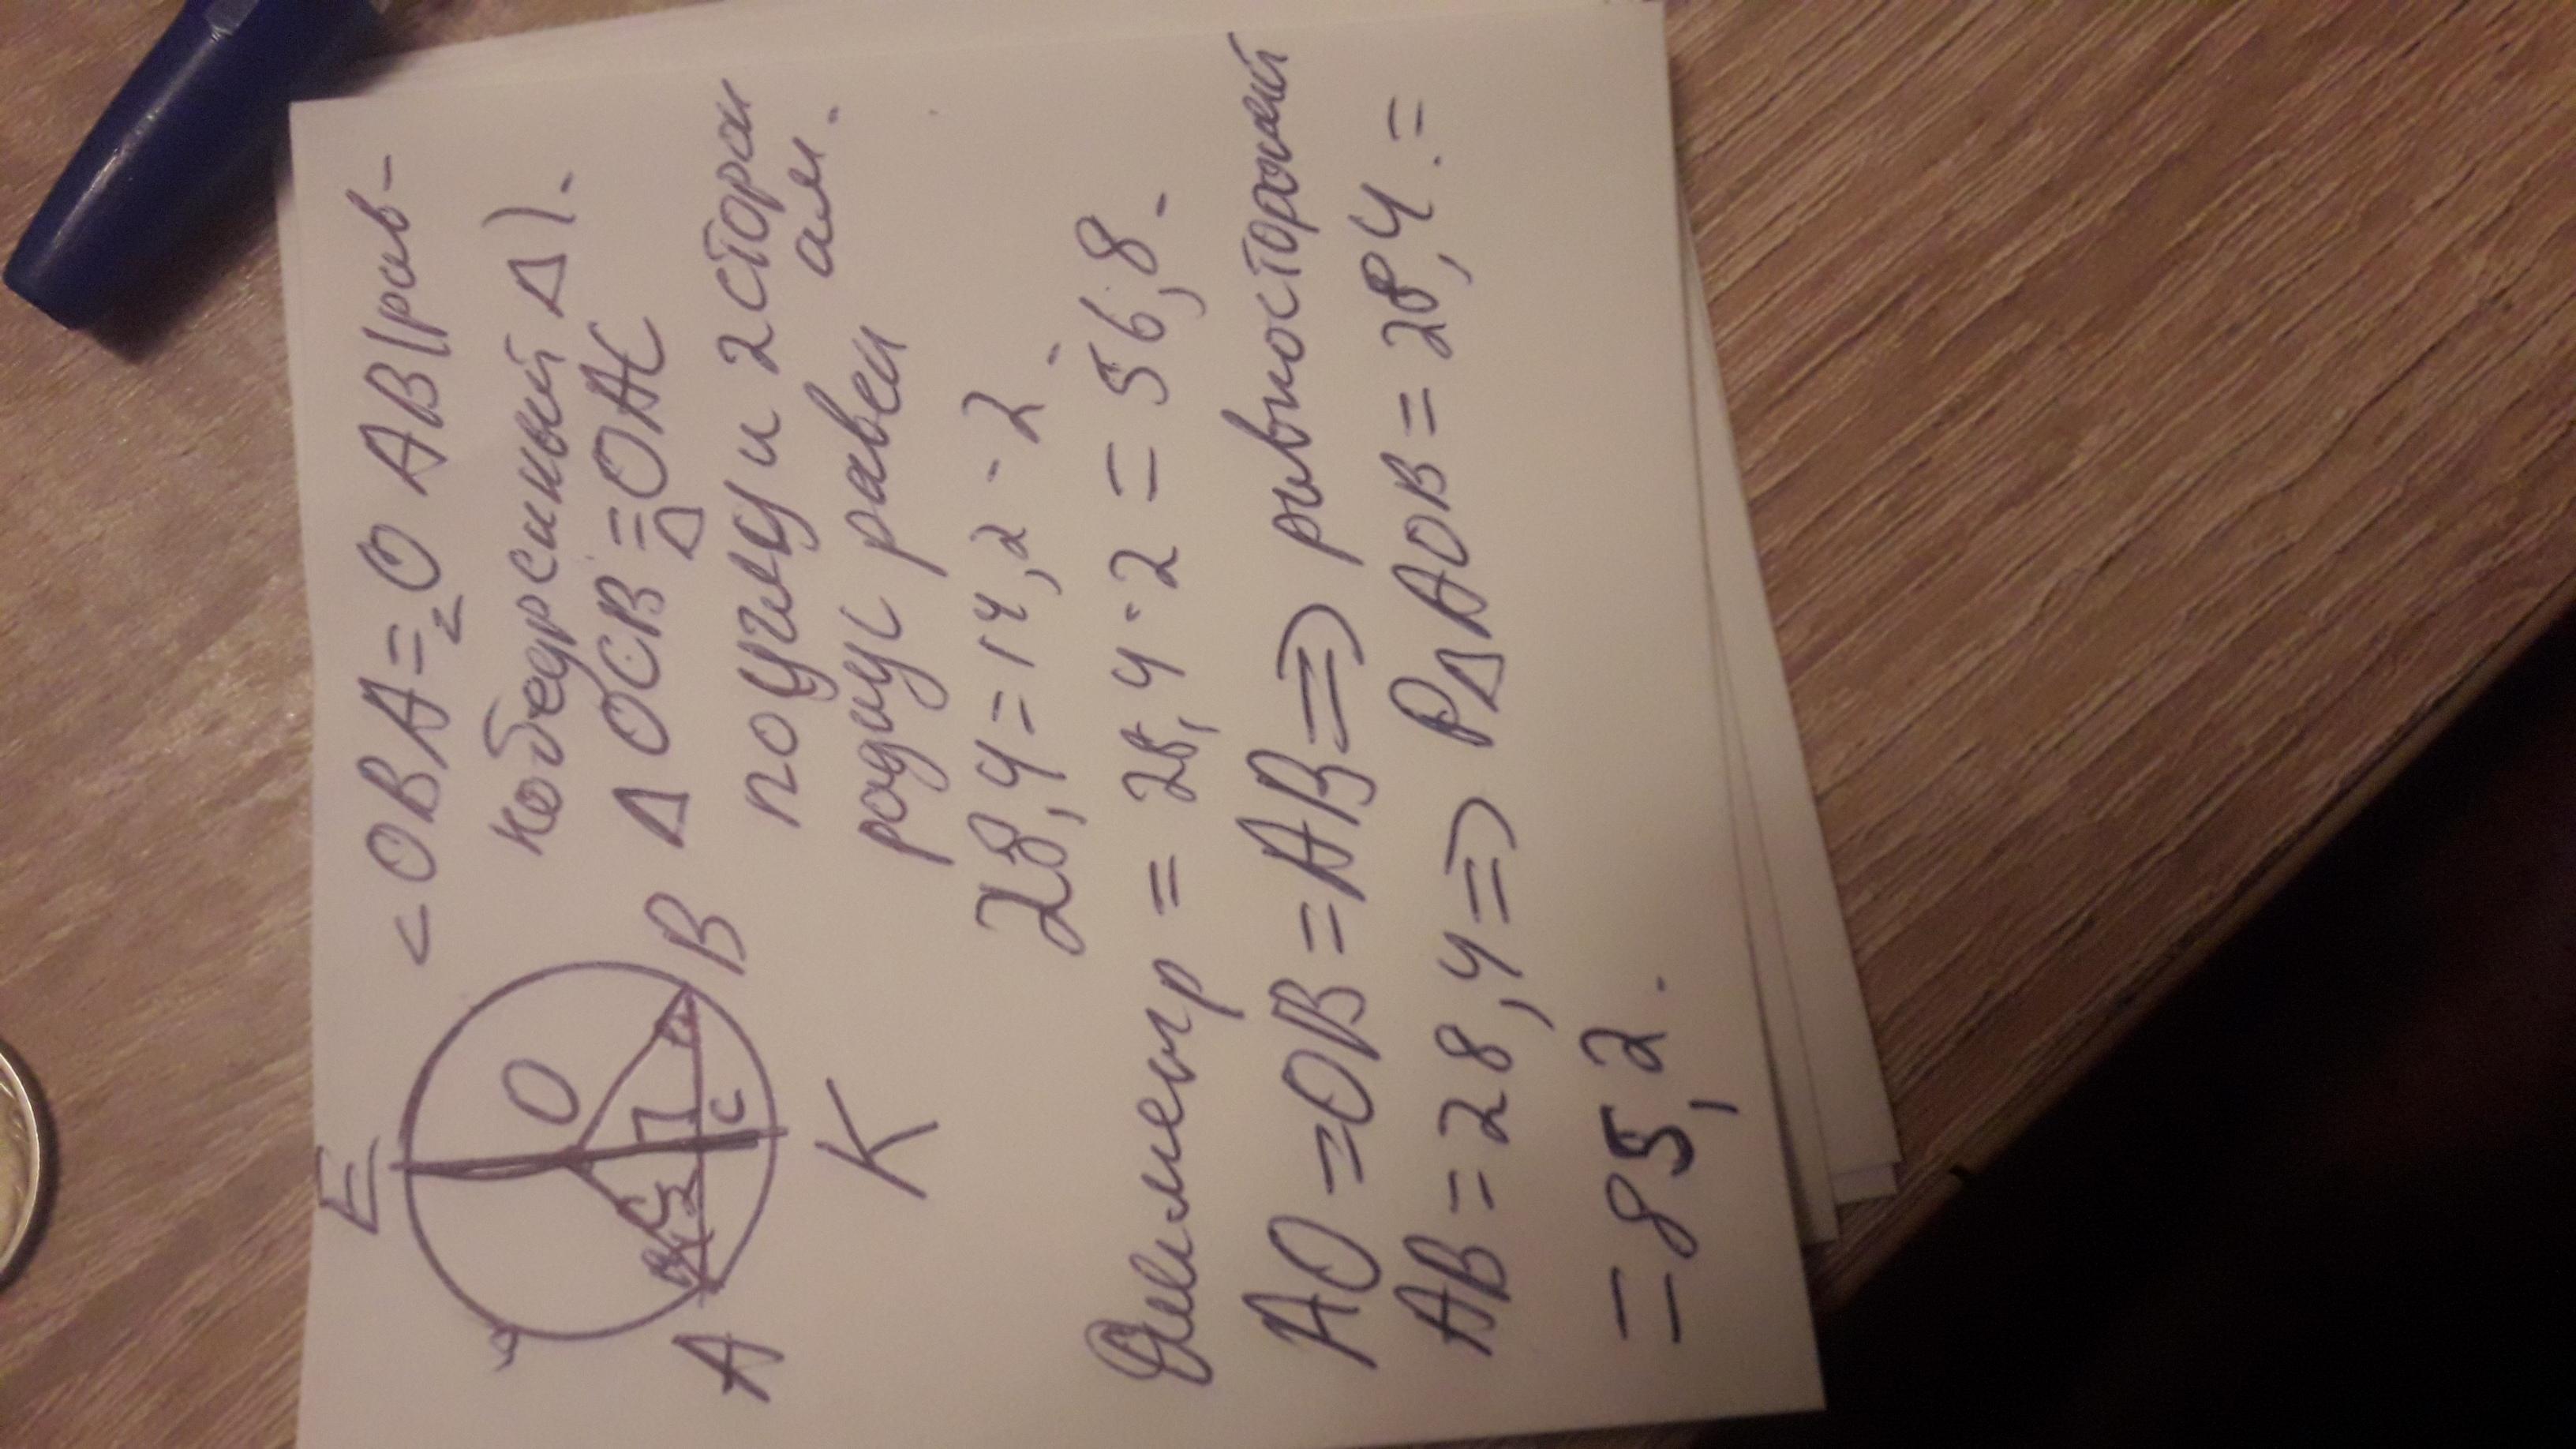 E
O
A
B
C
K
<OBA=<OAB(рав-
нобедренный Δ).
Δ OCB = Δ OAC
по углу и 2 сторон
ам.
радиус равен
28,4=14,2·2.
Диаметр = 28,4·2=56,8.
AO=OB=AB=> равносторонний
AB=28,4=> PΔAOB=28,4·=
=85,2.